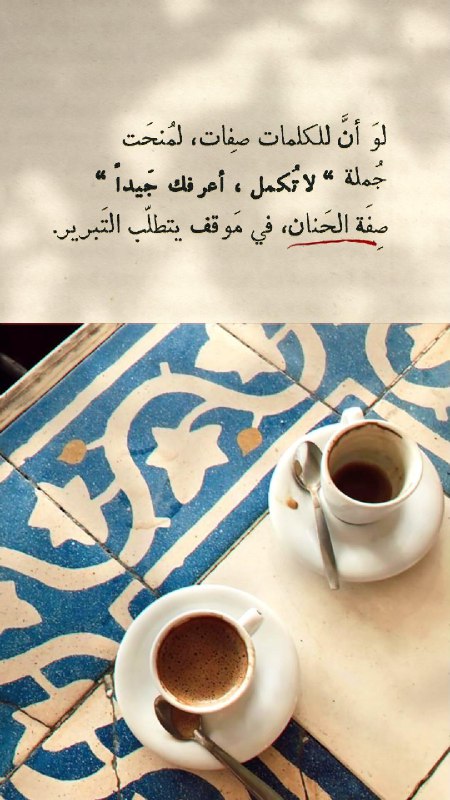 لوَ أنَّ للكلمات صفِات، لمُنحَت
جُملة “ لا تُكمل ، أعرفك جَيداً “
صِفَة الحَنان، في مَوقف يتطلّب التَبرير.